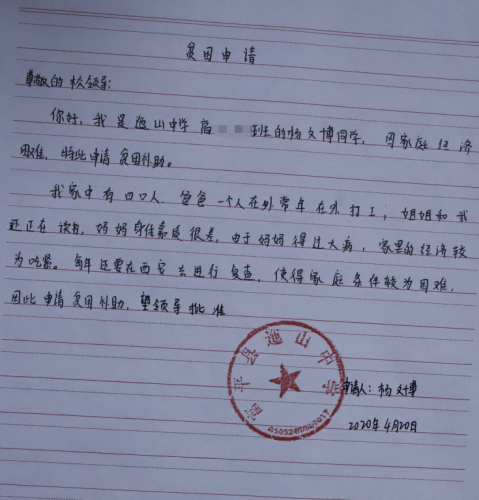 贫困申请
尊敬的校领导:
你好,我是迤山中学高 班的杨文博同学,因家庭经济
困难,特此申请贫困补助。
我家中有四口人,爸爸一个人在外常年在外打工,姐姐和我
还正在读书,妈妈身体素质很差,由于妈妈得过大病,家里的经济较
为吃紧。每年还要在西安去进行复查,使得家庭条件较为困难,
因此申请贫困补助,望领导批准
迤山中学
申请人:杨文博
2020年4月20日